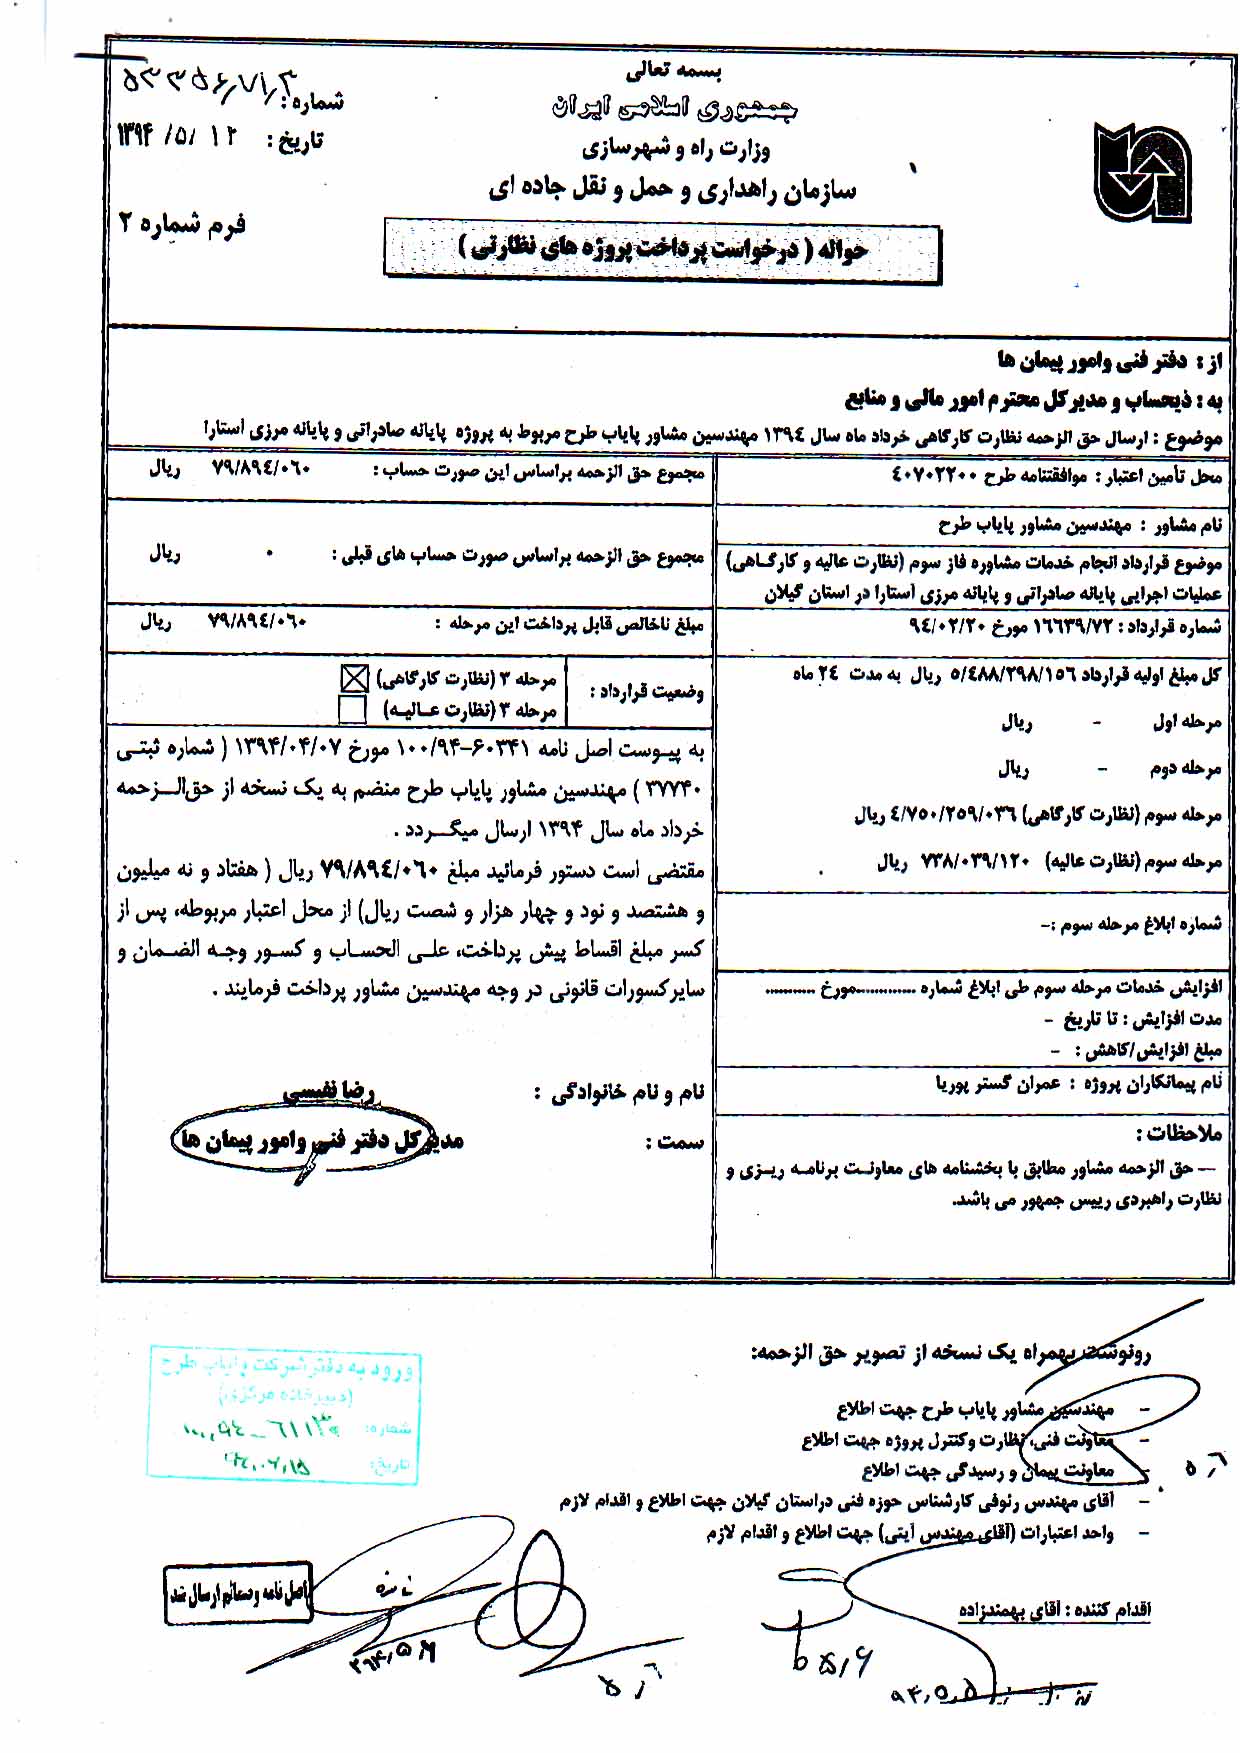 بسمه تعالی
جمهوری اسلامی ایران
وزارت راه و شهرسازی
سازمان راهداری و حمل و نقل جاده ای
حواله ( درخواست پرداخت پروژه های نظارتی )
شماره: ۵۳۳۵۶/۷۱/۳
تاریخ: ۱۳۹۴/۵/۱۲
فرم شماره ۲
از : دفتر فنی وامور پیمان ها
به : ذیحساب و مدیرکل محترم امور مالی و منابع
موضوع : ارسال حق الزحمه نظارت کارگاهی خرداد ماه سال ۱۳۹٤ مهندسین مشاور پایاب طرح مربوط به پروژه پایانه صادراتی و پایانه مرزی آستارا
محل تأمین اعتبار : موافقتنامه طرح ٤۰۷۰۲۲۰۰
نام مشاور : مهندسین مشاور پایاب طرح
موضوع قرارداد انجام خدمات مشاوره فاز سوم (نظارت عالیه و کارگاهی)
عملیات اجرایی پایانه صادراتی و پایانه مرزی آستارا در استان گیلان
شماره قرارداد : ۱۶۶۳۹/۷۲ مورخ ۹٤/۰۲/۲۰
کل مبلغ اولیه قرارداد ۵/٤۸۸/۲۹۸/۱۵۶ ریال به مدت ۲٤ ماه
مرحله اول - ریال
مرحله دوم - ریال
مرحله سوم (نظارت کارگاهی) ٤/۷۵۰/۲۵۹/۰۳۶ ریال
مرحله سوم (نظارت عالیه) ۷۳۸/۰۳۹/۱۲۰ ریال
شماره ابلاغ مرحله سوم :-
افزایش خدمات مرحله سوم طی ابلاغ شماره ..............مورخ ...........
مدت افزایش : تا تاریخ -
مبلغ افزایش/کاهش : -
نام پیمانکاران پروژه : عمران گستر پوریا
ملاحظات :
— حق الزحمه مشاور مطابق با بخشنامه های معاونت برنامه ریزی و
نظارت راهبردی رییس جمهور می باشد.
مجموع حق الزحمه براساس این صورت حساب : ۷۹/۸۹٤/۰۶۰ ریال
مجموع حق الزحمه براساس صورت حساب های قبلی : ۰ ریال
مبلغ ناخالص قابل پرداخت این مرحله : ۷۹/۸۹٤/۰۶۰ ریال
وضعیت قرارداد :
مرحله ۳ (نظارت کارگاهی)
مرحله ۳ (نظارت عالیه)
به پیوست اصل نامه ۶۰۳۴۱-۱۰۰/۹۴ مورخ ۱۳۹۴/۰۴/۰۷ ( شماره ثبتی
۳۷۷۴۰ ) مهندسین مشاور پایاب طرح منضم به یک نسخه از حق‌الزحمه
خرداد ماه سال ۱۳۹۴ ارسال میگردد .
مقتضی است دستور فرمائید مبلغ ۷۹/۸۹٤/۰۶۰ ریال ( هفتاد و نه میلیون
و هشتصد و نود و چهار هزار و شصت ریال) از محل اعتبار مربوطه، پس از
کسر مبلغ اقساط پیش پرداخت، علی الحساب و کسور وجه الضمان و
سایرکسورات قانونی در وجه مهندسین مشاور پرداخت فرمایند .
نام و نام خانوادگی : رضا نفیسی
سمت : مدیر کل دفتر فنی وامور پیمان ها
رونوشت بهمراه یک نسخه از تصویر حق الزحمه:
- مهندسین مشاور پایاب طرح جهت اطلاع
- معاونت فنی، نظارت و کنترل پروژه جهت اطلاع
- معاونت پیمان و رسیدگی جهت اطلاع
- آقای مهندس رئوفی کارشناس حوزه فنی دراستان گیلان جهت اطلاع و اقدام لازم
- واحد اعتبارات (آقای مهندس آیتی) جهت اطلاع و اقدام لازم
اقدام کننده : آقای بهمندزاده
ورود به دفتر شرکت پایاب طرح
(دبیرخانه مرکزی)
شماره: ۱۰۰/۹٤-۶۱۱۳۰
تاریخ:
اصل نامه و ضمائم ارسال شد
۵/۶
۵/۶
۵/۶
۹۴/۵/۵